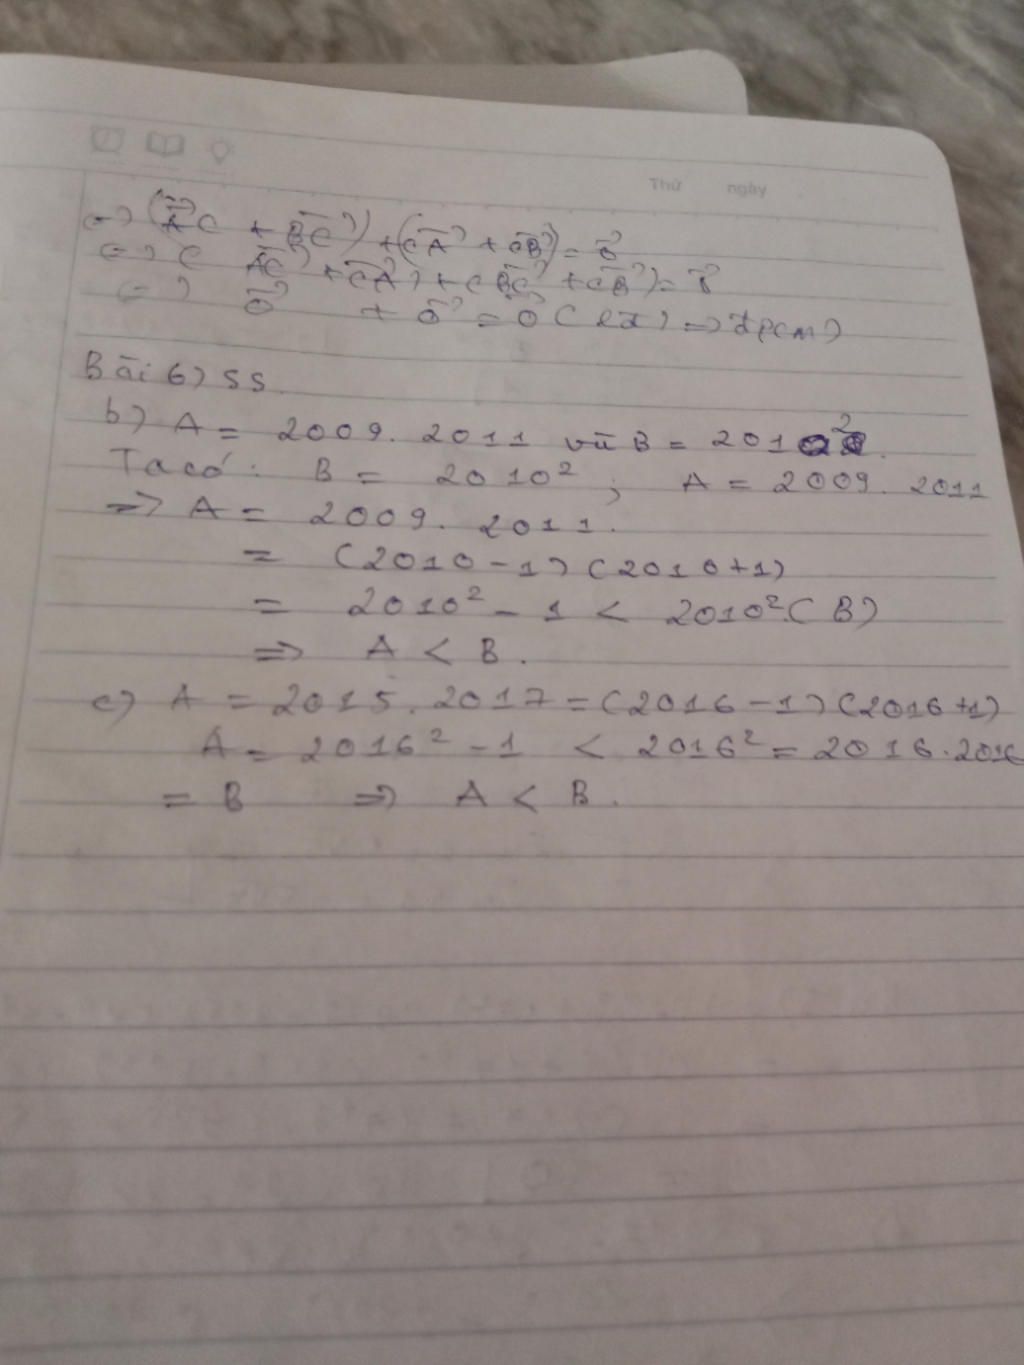 Thứ ngày
<=> (AC + BC) + (CA + CB) = 0
<=> (AC + CA) + (BC + CB) = 0
<=> 0 + 0 = 0 (lđ) => đpcm)
Bài 6) SS
b) A = 2009. 2011 và B = 2010².
Ta có: B = 2010² ; A = 2009. 2011
=> A = 2009. 2011.
= (2010 - 1) (2010+1)
= 2010² - 1 < 2010² (B)
=> A < B.
c) A = 2015. 2017 = (2016 - 1) (2016 +1)
A = 2016² - 1 < 2016² = 2016. 2016
= B => A < B.